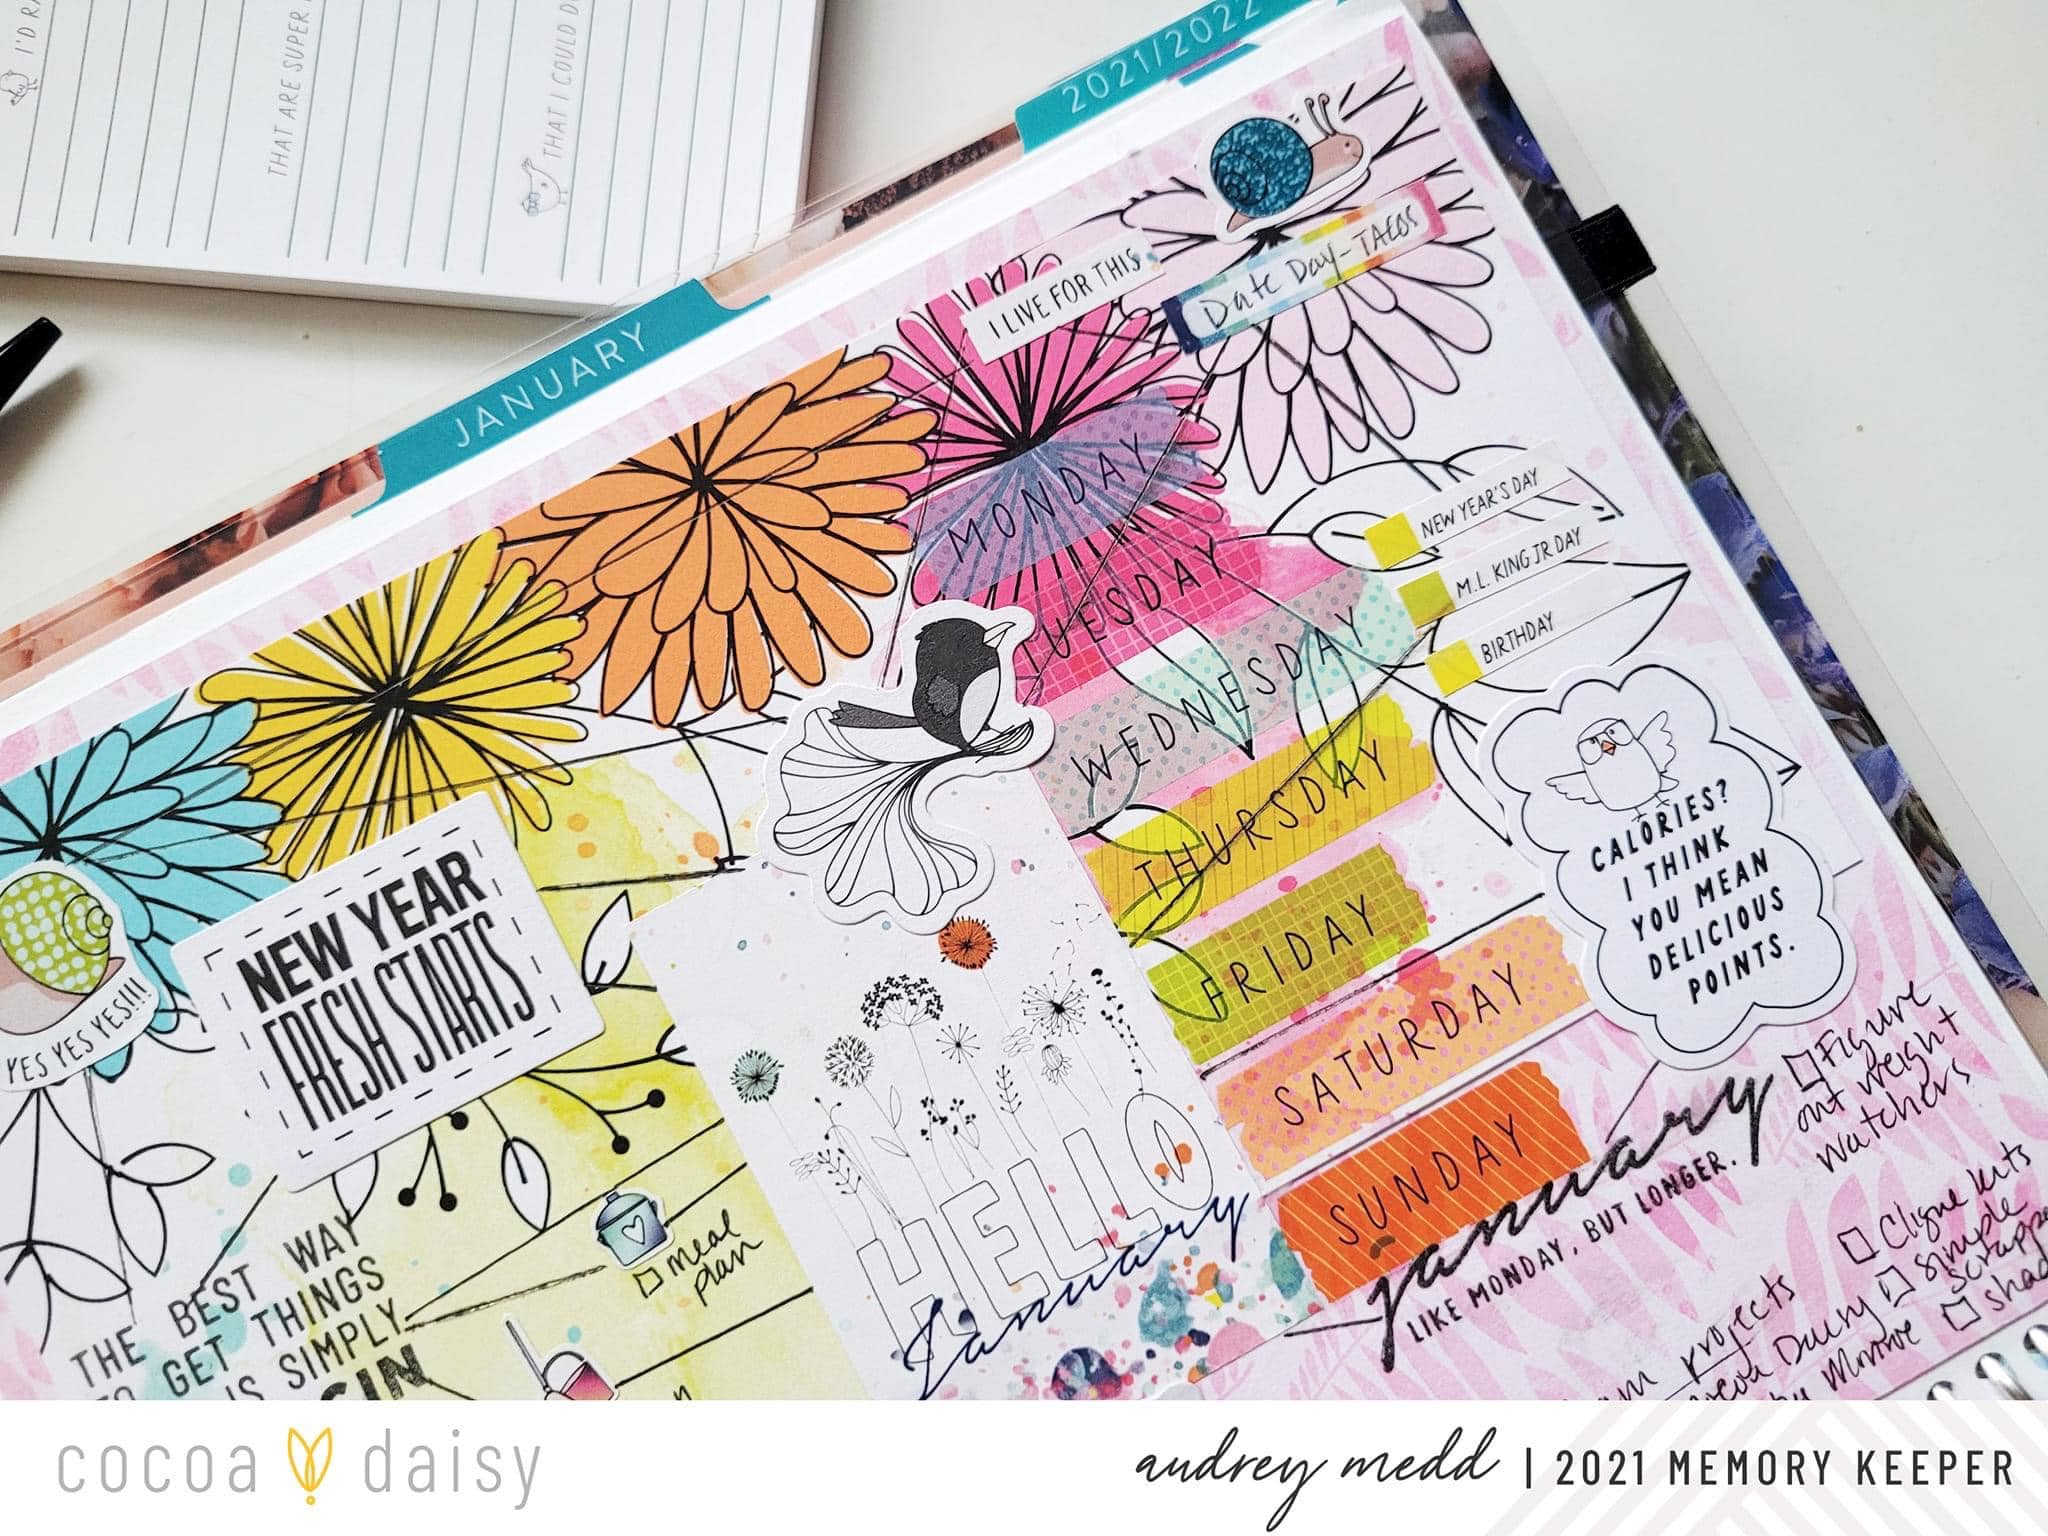 I'D RA
THAT ARE SUPER
THAT I COULD D
2021/2022
JANUARY
I LIVE FOR THIS
Date Day - TACOS
MONDAY
TUESDAY
WEDNESDAY
THURSDAY
FRIDAY
SATURDAY
SUNDAY
NEW YEAR'S DAY
M.L. KING JR DAY
BIRTHDAY
CALORIES?
I THINK
YOU MEAN
DELICIOUS
POINTS.
YES YES YES!!!
NEW YEAR
FRESH STARTS
THE BEST WAY
TO GET THINGS
IS SIMPLY
meal
plan
HELLO
January
january
LIKE MONDAY, BUT LONGER.
Figure
out weight
watchers
projects
Cocoa Daisy
Clique kits
Simple
Scrapp
Shad
cocoa daisy
audrey medd | 2021 MEMORY KEEPER